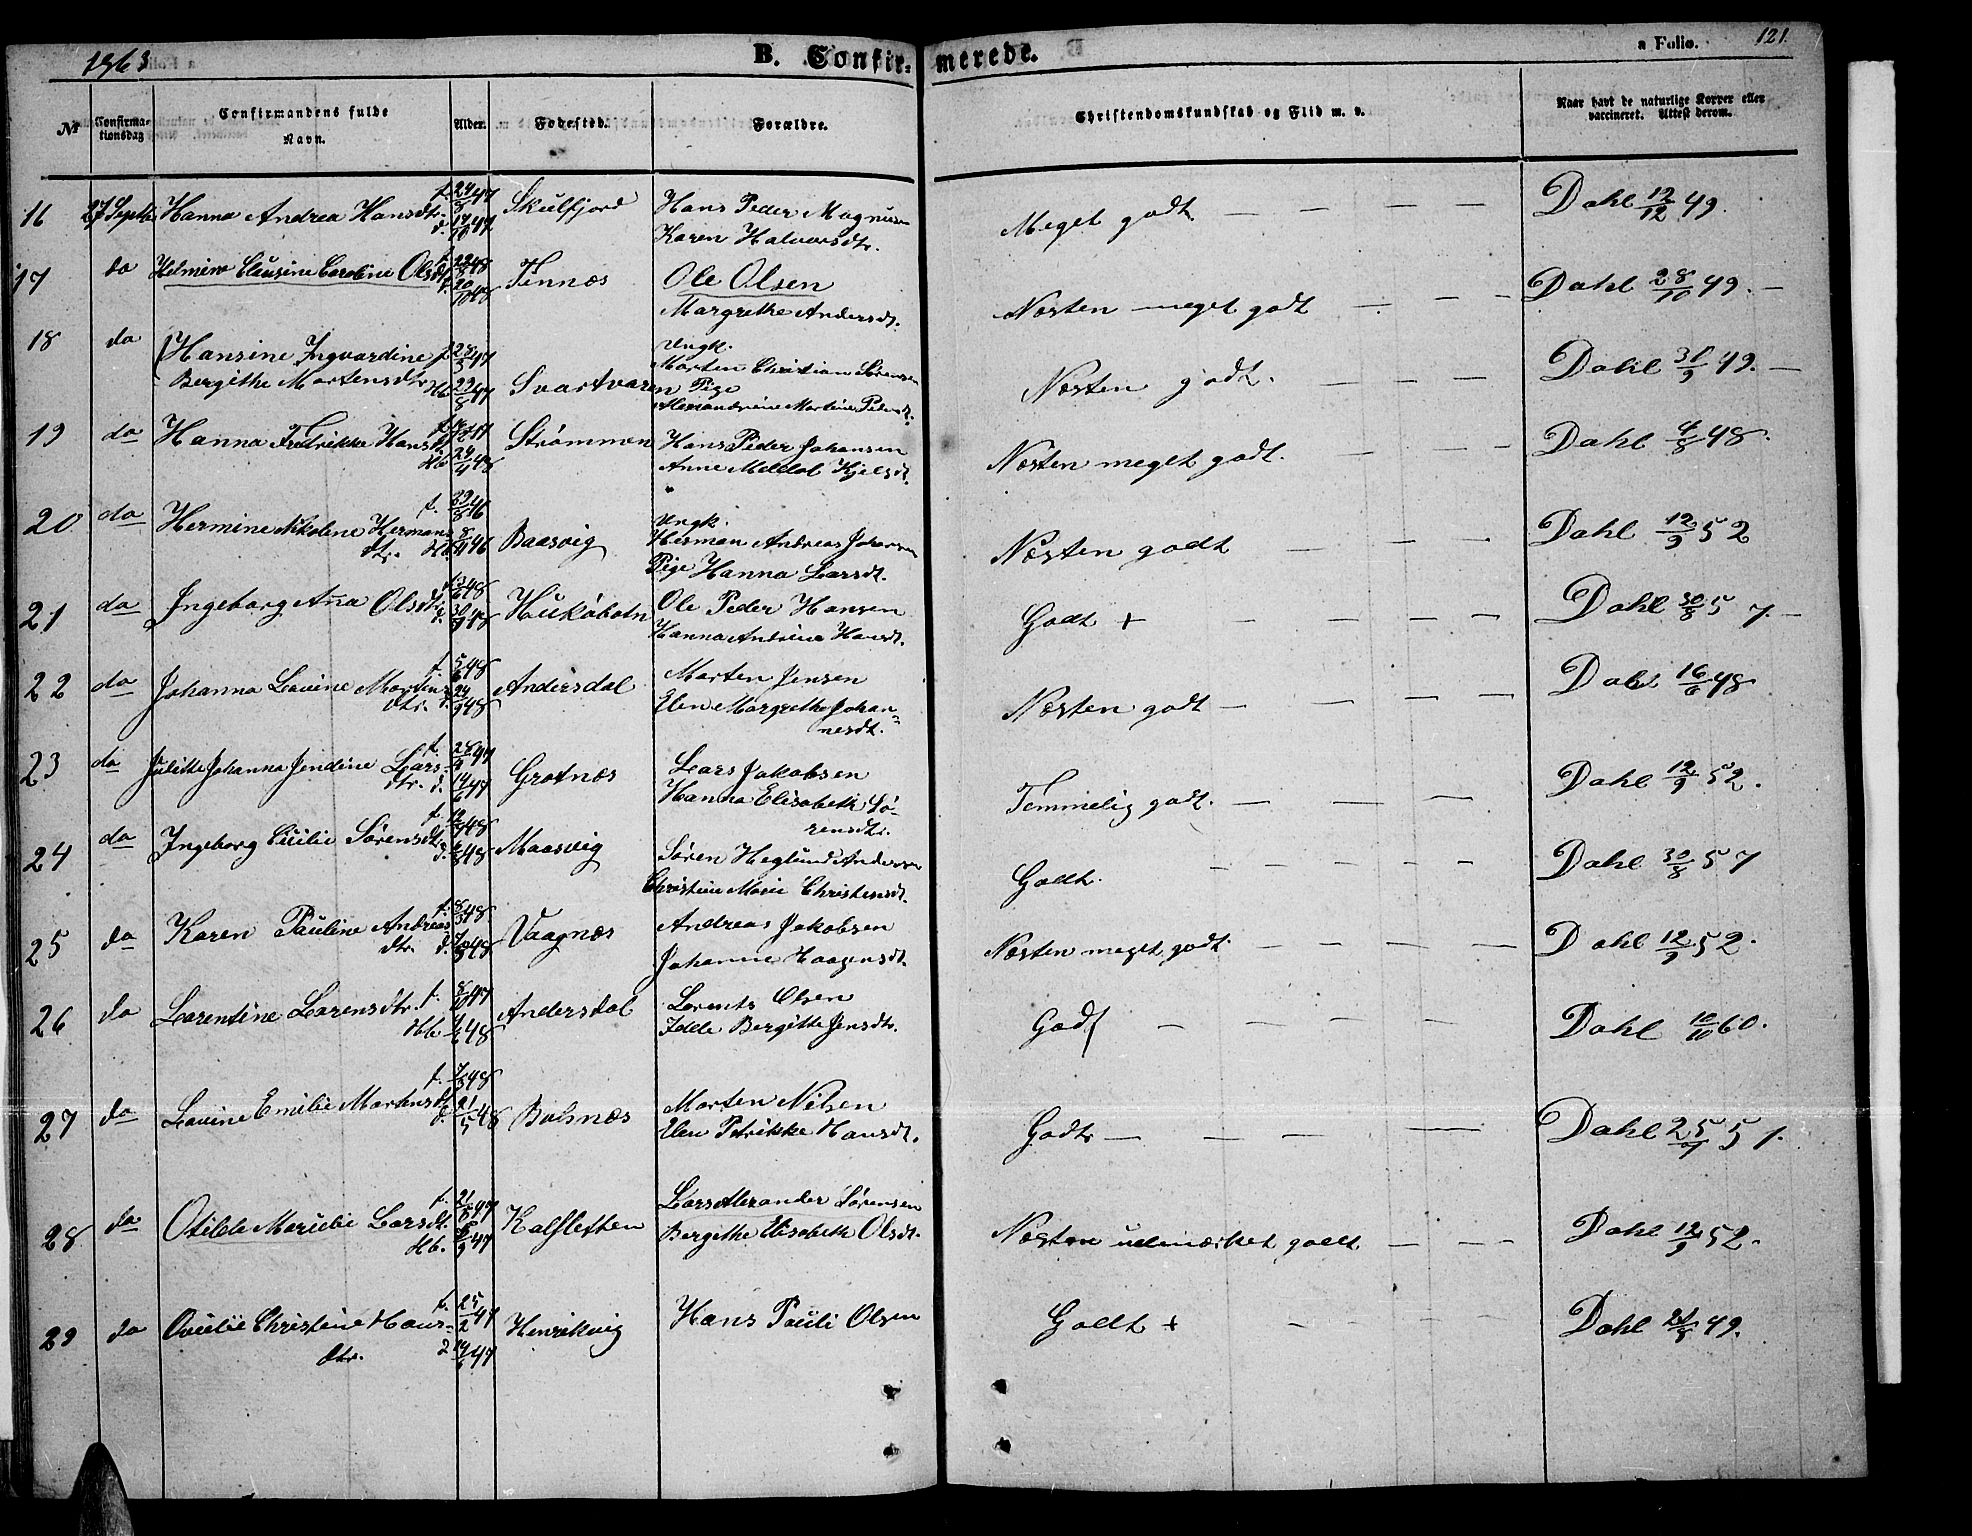 1863
B. Confir-
merede.
a Folio.
121.
№
Confirma-
tionsdag
Confirmandens fulde
Navn.
Alder.
Fødested.
Forældre.
Christendomskundskab og Flid m. v.
Naar havt de naturlige Kopper eller
vaccineret. Attest derom.
16 27 Septbr Hanna Andrea Hansdtr. f. d. Skulfjord Hans Peder Magnusen
Karen Halvorsdtr.
Meget godt. — — — — Dahl 12/12 49.
17 do Helmine Clausine Caroline Olsdtr f. 48 Tennæs Ole Olsen
Margrethe Andersdt.
Næsten meget godt — — — Dahl 28/10 49. —
18 do Hansine Ingvardine f. 47
Bergithe Mortensdtr Hb. 29/8 47 Svartvaren
Ungk.
Morten Christian Sørensen
Pige
Alexandrine Martine Pedersdt.
Næsten godt. — — — Dahl 49. —
19 do Hanna Fredrikke Hansdt Hb. Strømmen Hans Peder Johansen
Anne Meldal Kjelsdt.
Næsten meget godt. — Dahl 4/8 48.
20 do Hermine Nikoline Hermans
dtr. Hb. f. 46 46 Baasvig
Ungk.
Herman Andreas Johansen
Pige Hanna Larsdt.
Næsten godt — — — Dahl 12/9 52
21 do Ingeborg Anna Olsdtr 48 Kukøbotn Ole Peder Hansen
Hanna Andrine Hansdt.
Godt + — — — — Dahl 30/8 57. —
22 do Johanna Lavine Mortens
dtr. f. 5/6 48 24/9 48 Andersdal Morten Jensen
Elen Margrethe Johan-
nesdt.
Næsten godt — — — — Dahl 16/6 48
23 do Julitte Johanna Jendine Lars-
dtr. f. 47 d. 47 Grøtnæs Lars Jakobsen
Hanna Elisabeth Sø-
rensdtr.
Temmelig godt. — — — — Dahl 12/9 52.
24 do Ingeborg Cecilie Sørensdt f. 48 d. 48 Maasvig Søren Heglund Andersen
Christine Marie Christensdt.
Godt. — — — — Dahl 30/8 57
25 do Karen Pauline Andreas
dtr. f. 8/3 48. d. 48 Vaagnæs Andreas Jakobsen
Johanne Haagensdt.
Næsten meget godt. — — — — Dahl 12/9 52.
26 do Larentine Larensdtr. f. 8/10 47
Hb. 48 Andersdal Lorents Olsen
Idde Bergitte Jensdtr.
Godt — — — — Dahl 10/10 60.
27 do Lavine Emilie Martensdt f. 48 d. 21/5 48 Balsnæs Morten Nilsen
Elen Petrikke Hansdt.
Godt — — — — Dahl 25 57.
28 do Otilde Marielie Larsdt. f. 21/8 47
Hb. 47 Kalfletten Lars Alexander Sørensen
Bergithe Elisabeth Olsdt.
Næsten udmærket godt — — — Dahl 12/9 52.
29 do Ovidie Christine Hans-
dtr. f. 25/2 47 47 Henrikvig Hans Pauli Olsen
Godt + — — — — Dahl 49.